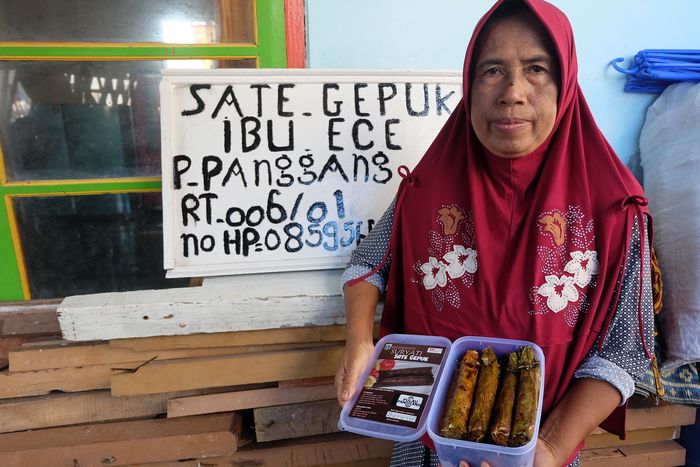 SATE_GEPUK
IBU_ECE
P_PANggANg
RT_006/01
no HP=08595
SURYATI
SATE GEPUK